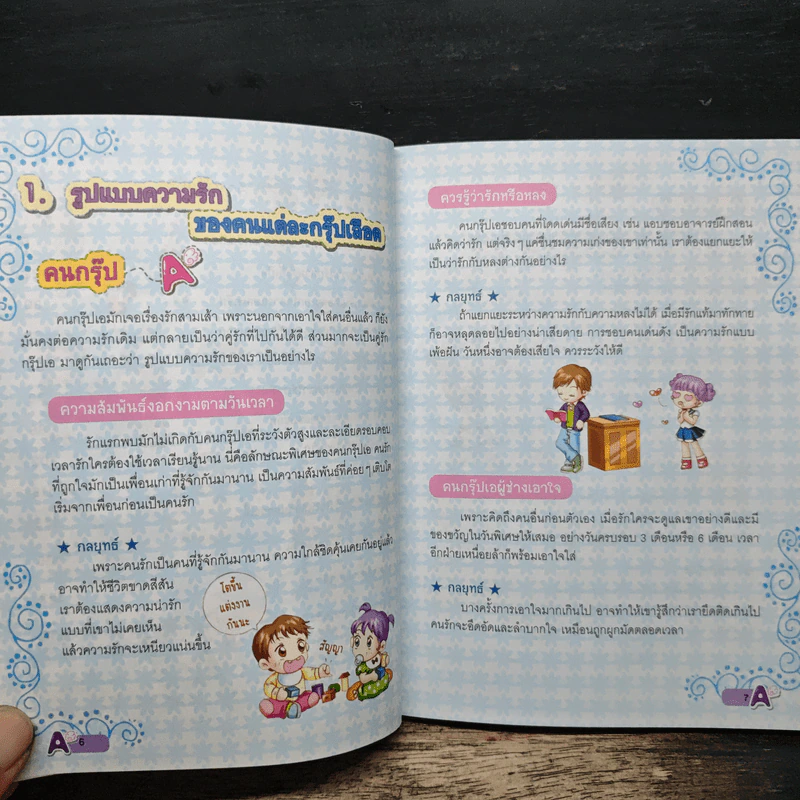 1. รูปแบบความรัก
ของคนแต่ละกรุ๊ปเลือด
คนกรุ๊ป A
คนกรุ๊ปเอมักเจอเรื่องรักสามเส้า เพราะนอกจากเอาใจใส่คนอื่นแล้ว ก็ยัง
มั่นคงต่อความรักเดิม แต่กลายเป็นว่าคู่รักที่ไปกันได้ดี ส่วนมากจะเป็นคู่รัก
กรุ๊ปเอ มาดูกันเถอะว่า รูปแบบความรักของเราเป็นอย่างไร
ความสัมพันธ์งอกงามตามวันเวลา
รักแรกพบมักไม่เกิดกับคนกรุ๊ปเอที่ระวังตัวสูงและละเอียดรอบคอบ
เวลารักใครต้องใช้เวลาเรียนรู้นาน นี่คือลักษณะพิเศษของคนกรุ๊ปเอ คนรัก
ที่ถูกใจมักเป็นเพื่อนเก่าที่รู้จักกันมานาน เป็นความสัมพันธ์ที่ค่อยๆ เติบโต
เริ่มจากเพื่อนก่อนเป็นคนรัก
★ กลยุทธ์ ★
เพราะคนรักเป็นคนที่รู้จักกันมานาน ความใกล้ชิดคุ้นเคยกันอยู่แล้ว
อาจทำให้ชีวิตขาดสีสัน
เราต้องแสดงความน่ารัก
แบบที่เขาไม่เคยเห็น
แล้วความรักจะเหนียวแน่นขึ้น
โตขึ้น
แต่งงาน
กันนะ
สัญญา
A 6
ควรรู้ว่ารักหรือหลง
คนกรุ๊ปเอชอบคนที่โดดเด่นมีชื่อเสียง เช่น แอบชอบอาจารย์ฝึกสอน
แล้วคิดว่ารัก แต่จริงๆ แค่ชื่นชมความเก่งของเขาเท่านั้น เราต้องแยกแยะให้
เป็นว่ารักกับหลงต่างกันอย่างไร
★ กลยุทธ์ ★
ถ้าแยกแยะระหว่างความรักกับความหลงไม่ได้ เมื่อมีรักแท้มาทักทาย
ก็อาจหลุดลอยไปอย่างน่าเสียดาย การชอบคนเด่นดัง เป็นความรักแบบ
เพ้อฝัน วันหนึ่งอาจต้องเสียใจ ควรระวังให้ดี
คนกรุ๊ปเอผู้ช่างเอาใจ
เพราะคิดถึงคนอื่นก่อนตัวเอง เมื่อรักใครจะดูแลเขาอย่างดีและมี
ของขวัญในวันพิเศษให้เสมอ อย่างวันครบรอบ 3 เดือนหรือ 6 เดือน เวลา
อีกฝ่ายเหนื่อยล้าก็พร้อมเอาใจใส่
★ กลยุทธ์ ★
บางครั้งการเอาใจมากเกินไป อาจทำให้เขารู้สึกว่าเรายึดติดเกินไป
คนรักจะอึดอัดและลำบากใจ เหมือนถูกผูกมัดตลอดเวลา
7 A